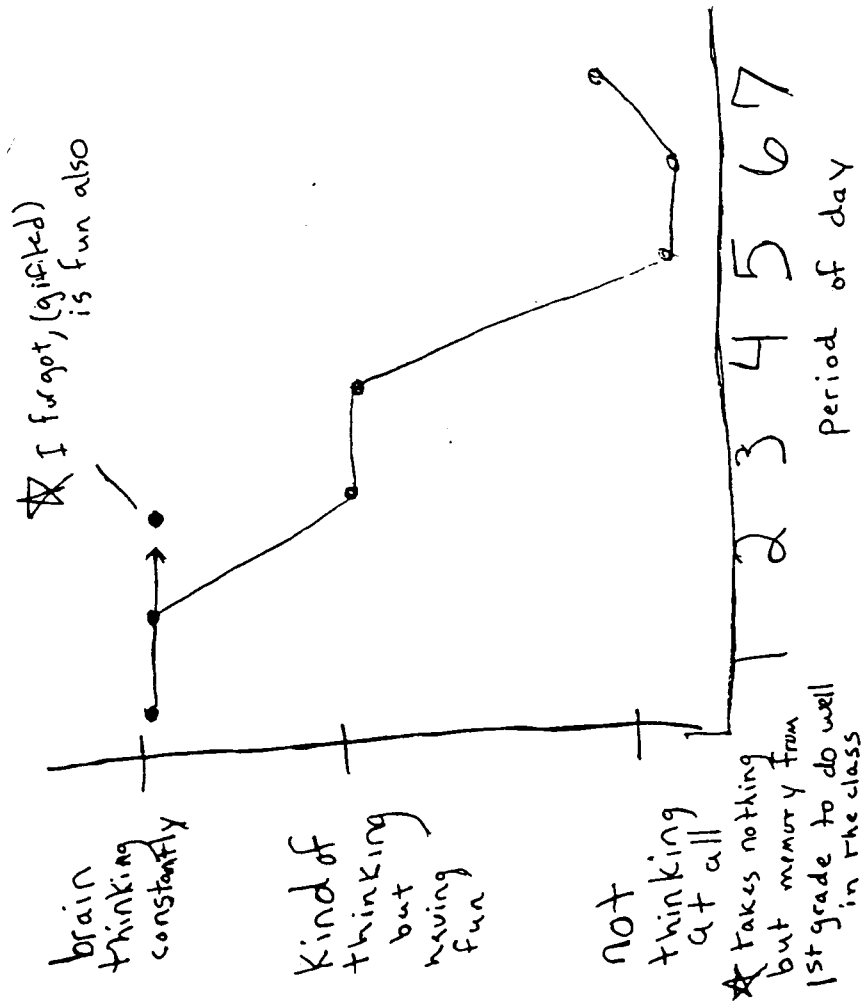 ☆ I furgot, (gifited)
is fun also
brain
thinking
constantly
Kind of
thinking
but
having
fun
not
thinking
at all
☆ takes nothing
but memory from
1st grade to do well
in the class
1 2 3 4 5 6 7
period of day